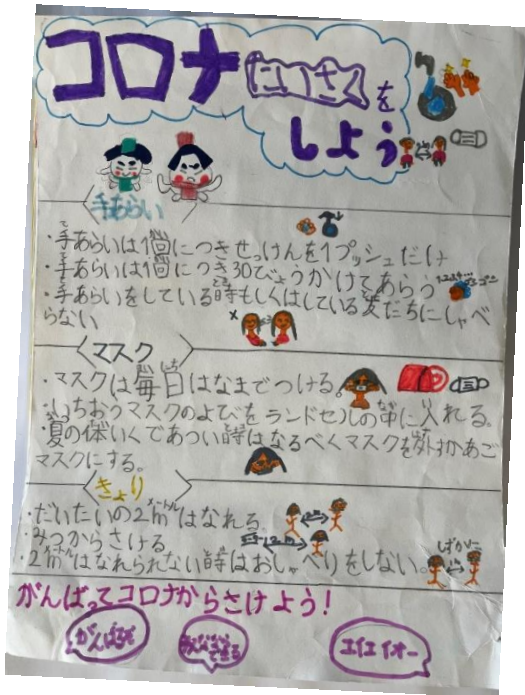 コロナたいさくを
しよう
手あらい
・手あらいは1回につきせっけんを1プッシュだけ
・手あらいは1回につき30びょうかけてあらう
・手あらいをしている時もしくはしている友だちにしゃべ
らない
マスク
・マスクは毎日はなまでつける。
・いちおうマスクのよびをランドセルの中に入れる。
・夏の体いくであつい時はなるべくマスクを外すかあご
マスクにする。
きょり
・だいたいの2mはなれる
・みつからさける
・2mはなれられない時はおしゃべりをしない。
しずかに
がんばってコロナからさけよう!
がんばるぞ
エイエイオー